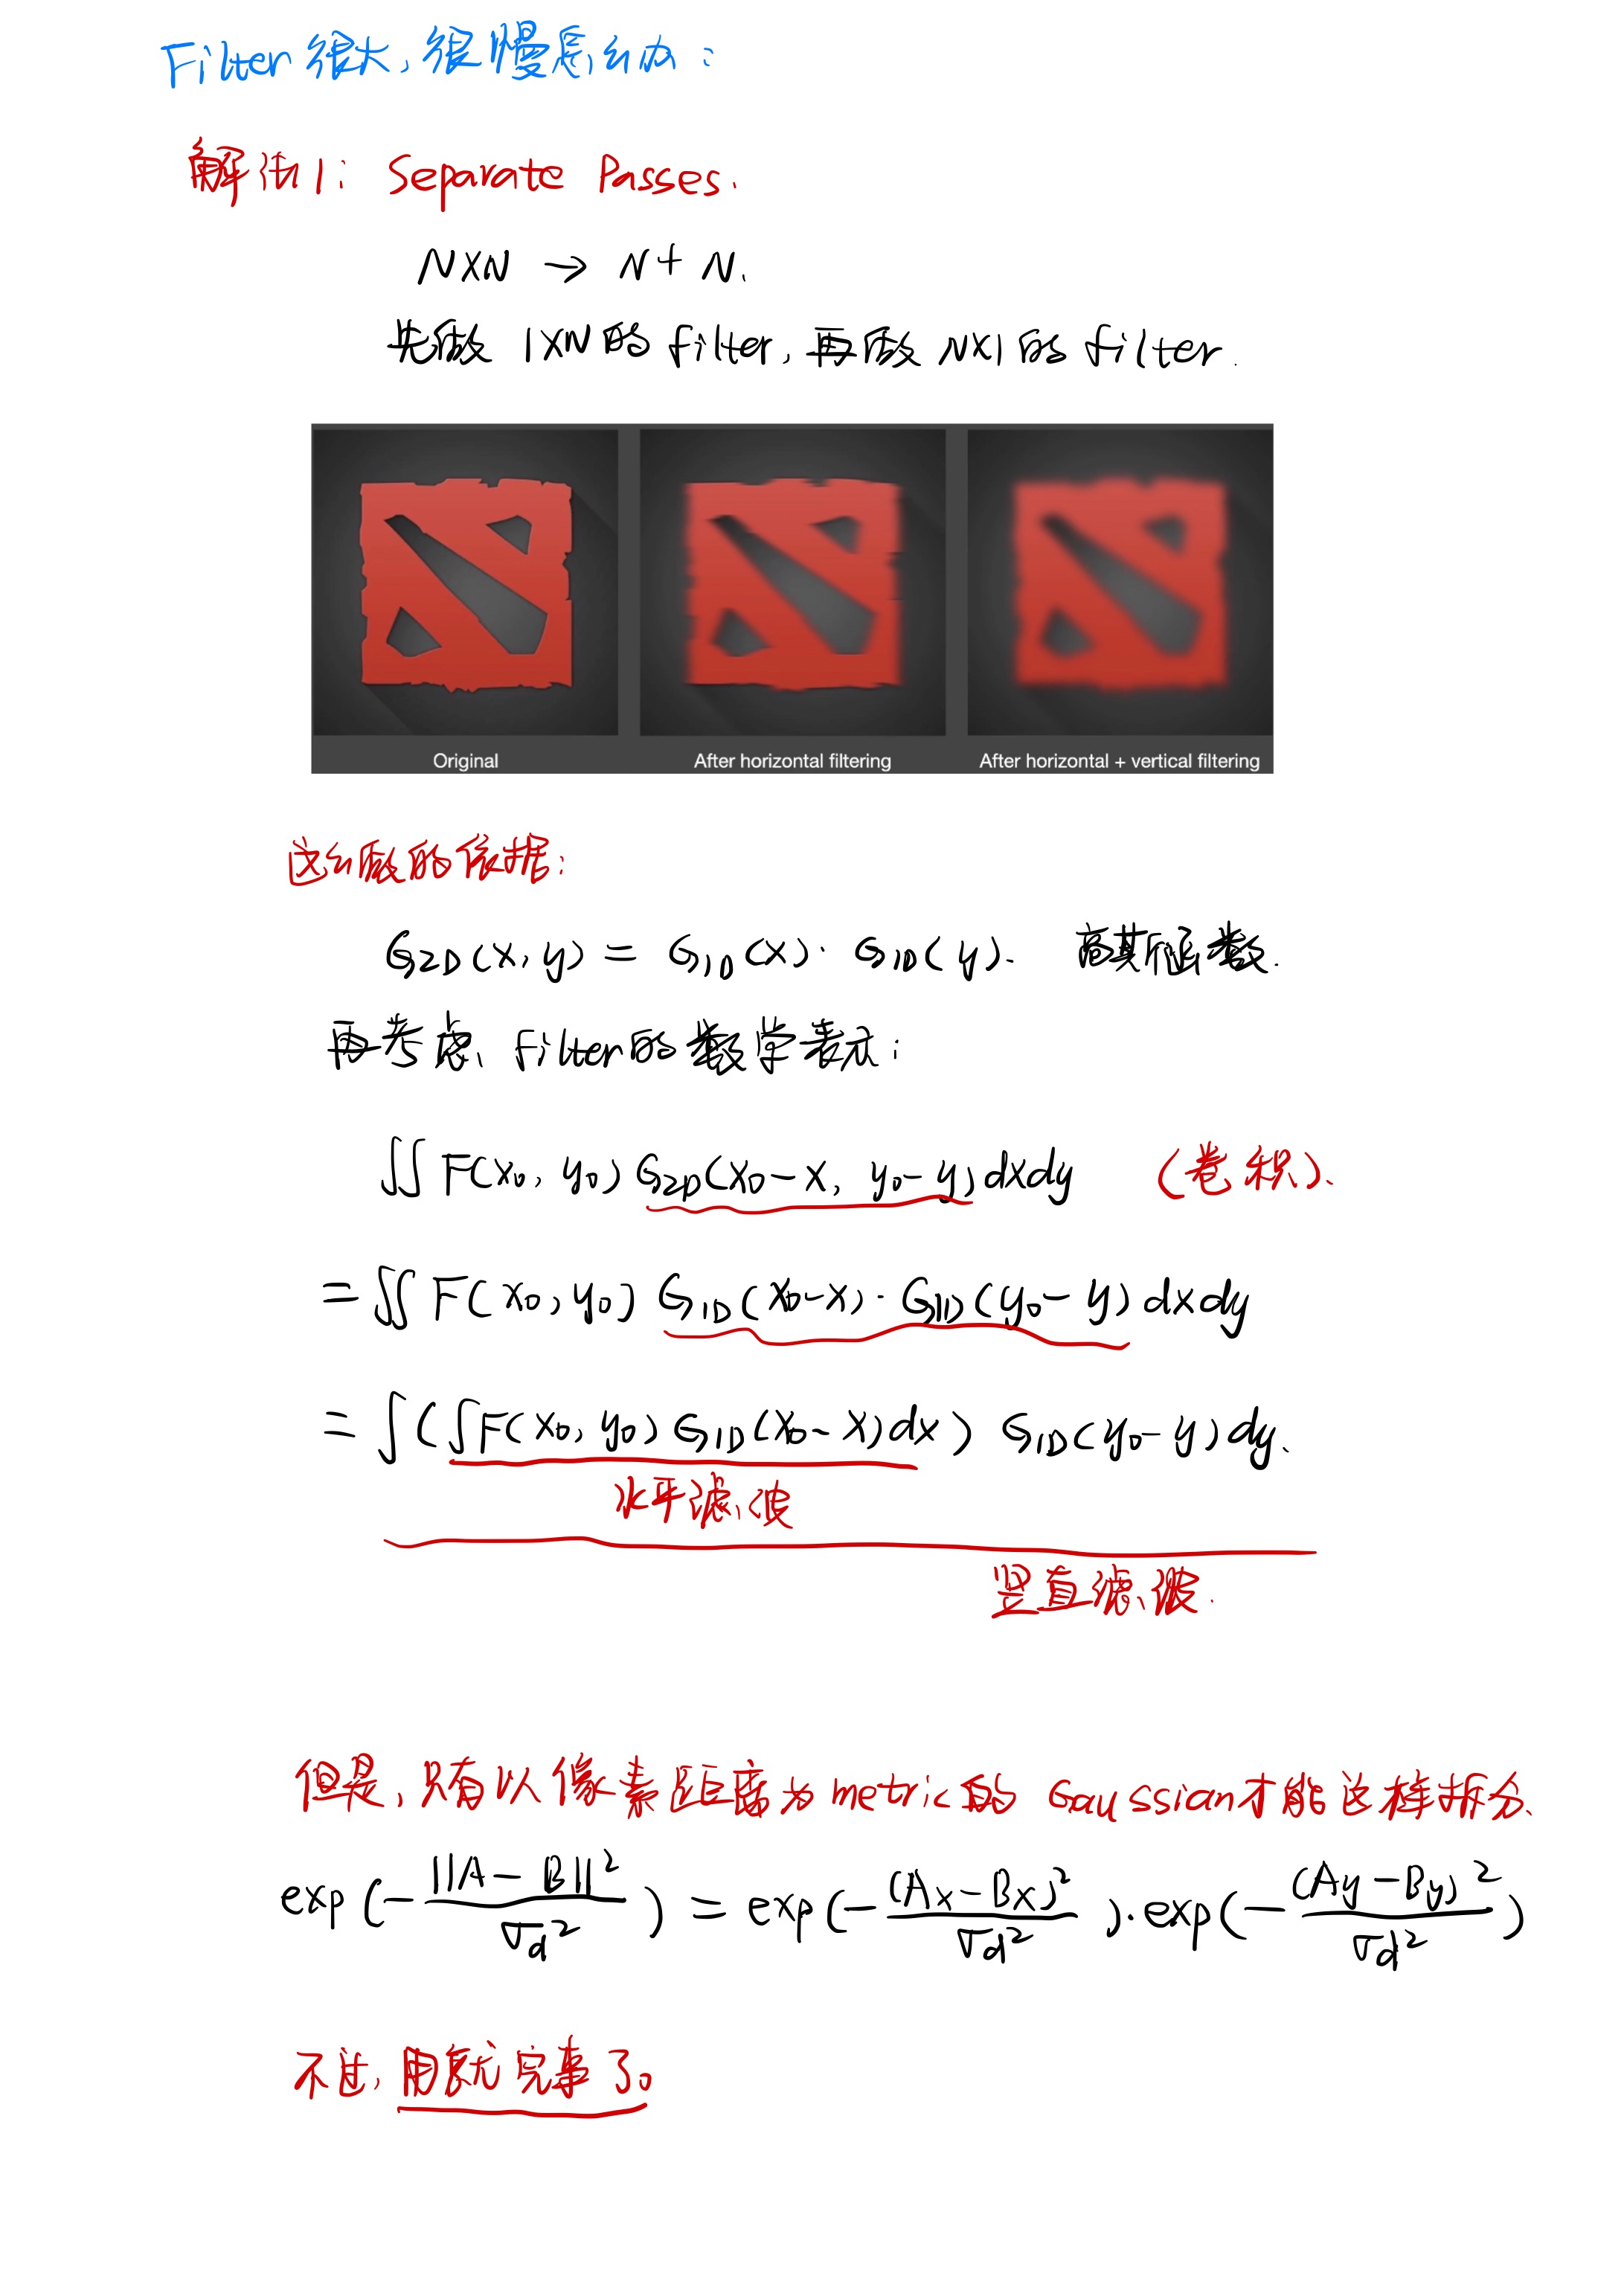 Filter很大,很慢怎么办:
解法1: Separate Passes.
N×N → N+N.
先做 1×N的filter,再做 N×1的filter.
Original After horizontal filtering After horizontal + vertical filtering
这么做的依据:
G2D(x,y) = G1D(x)·G1D(y). 高斯函数.
再考虑filter的数学表示:
∬ F(x₀, y₀) G2D(x₀-x, y₀-y) dxdy (卷积).
= ∬ F(x₀, y₀) G1D(x₀-x)·G1D(y₀-y) dxdy
= ∫(∫F(x₀, y₀) G1D(x₀-x)dx) G1D(y₀-y) dy.
水平滤波
竖直滤波.
但是,只有以像素距离为metric的 Gaussian才能这样拆分.
exp(-||A-B||²/σd²) = exp(-(Ax-Bx)²/σd²)·exp(-(Ay-By)²/σd²)
不过,用就完事了。